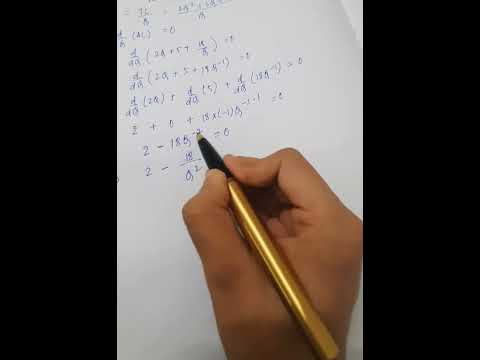 = TC/Q = 2Q² + 5Q +
d/dQ (AC) = 0
d/dQ (2Q + 5 + 18/Q) = 0
d/dQ (2Q + 5 + 18Q⁻¹) = 0
d/dQ (2Q) + d/dQ (5) + d/dQ (18Q⁻¹) = 0
2 + 0 + 18×(-1)Q⁻¹⁻¹ = 0
2 - 18Q⁻² = 0
2 - 18/Q²